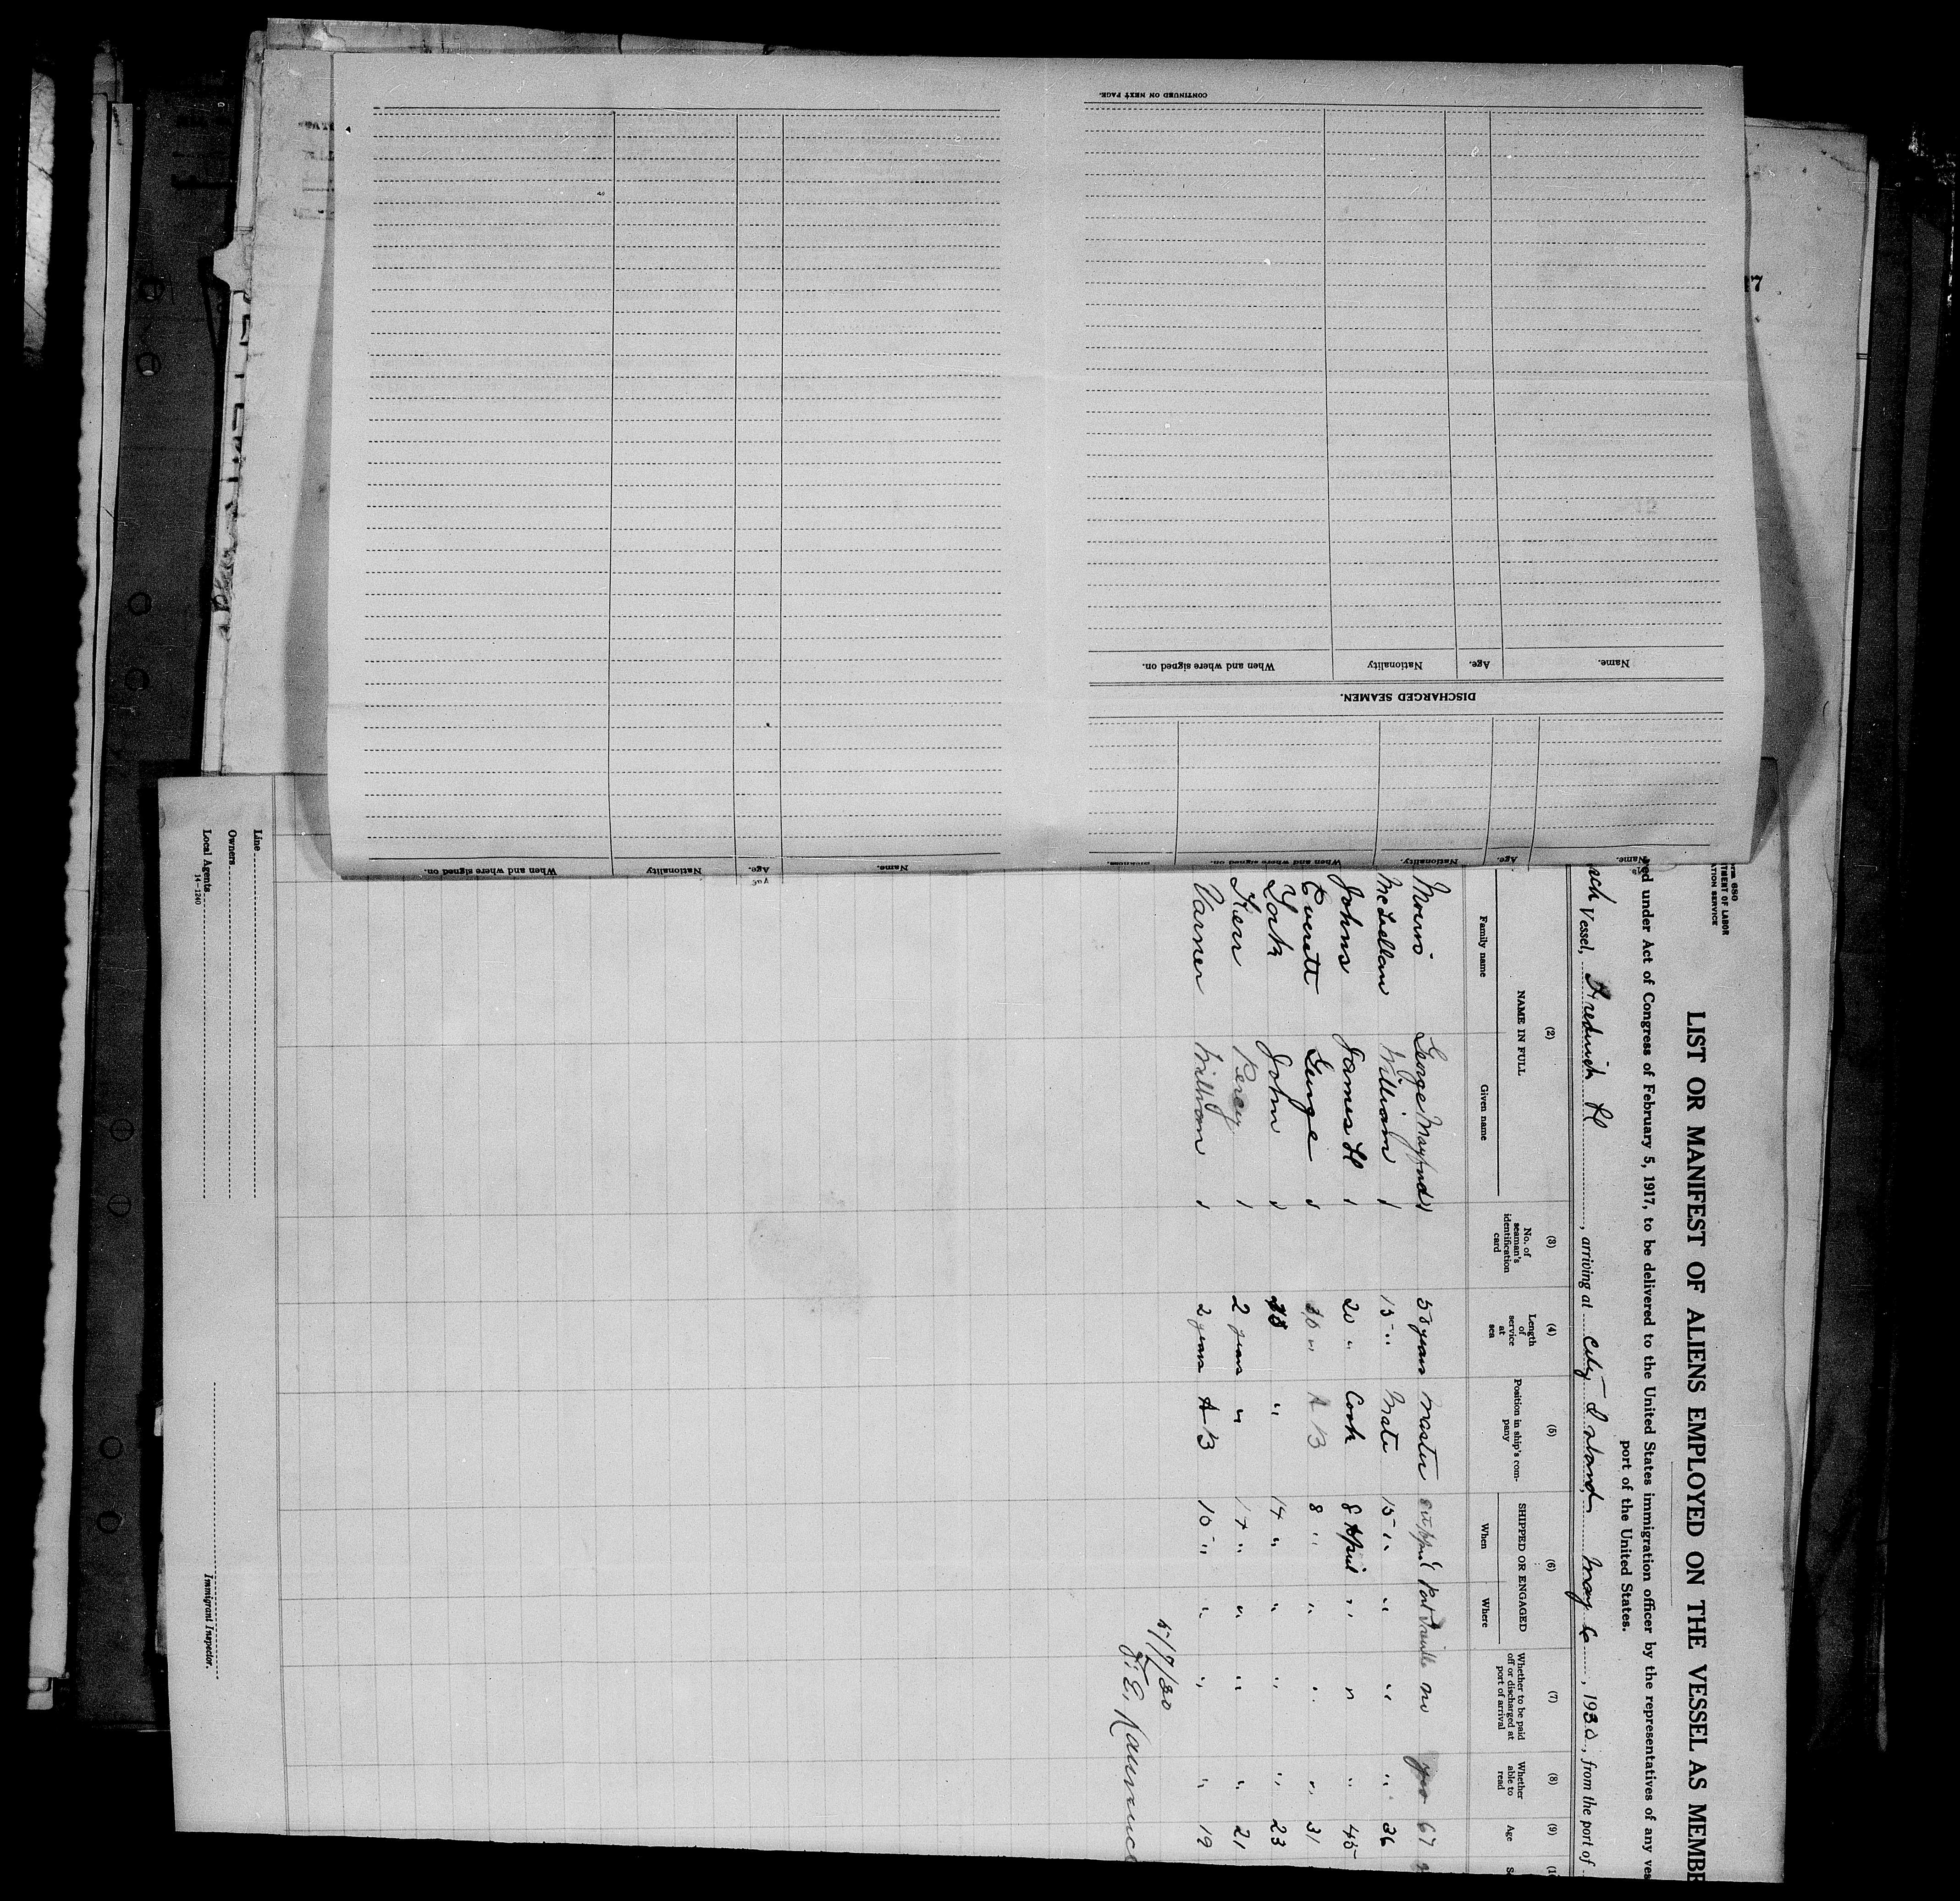 CONTINUED ON NEXT PAGE.
When and where signed on.
Nationality
Age.
Name.
DISCHARGED SEAMEN.
When and where signed on.
Nationality
Age.
Name.
When and where signed on.
Nationality.
Age.
Name.
LIST OR MANIFEST OF ALIENS EMPLOYED ON THE VESSEL AS MEMB
under Act of Congress of February 5, 1917, to be delivered to the United States immigration officer by the representatives of any
port of the United States.
Vessel, Fredrick H, arriving at City Island May 6, 1930, from the port of
(2) (3) (4) (5) (6) (7) (8) (9)
NAME IN FULL
Family name Given name
No. of seaman's identification card
Length of service at sea
Position in ship's company
SHIPPED OR ENGAGED
When Where
Whether to be paid off or discharged at port of arrival
Whether able to read
Age
Morris George years Master no yes 67
McLellan William 15 " Mate 15 " " " " 36
Johns James H 20 " Cook 8 April " " " 45
Everett George A B 8 " " " " 31
York John " 17 " " " " 23
Kerr Percy 2 years " 17 " " " " 21
Varner William 2 years A B 10 " " " " 19
5/7/30
Line
Owners
Local Agents
14-1240
Immigrant Inspector.